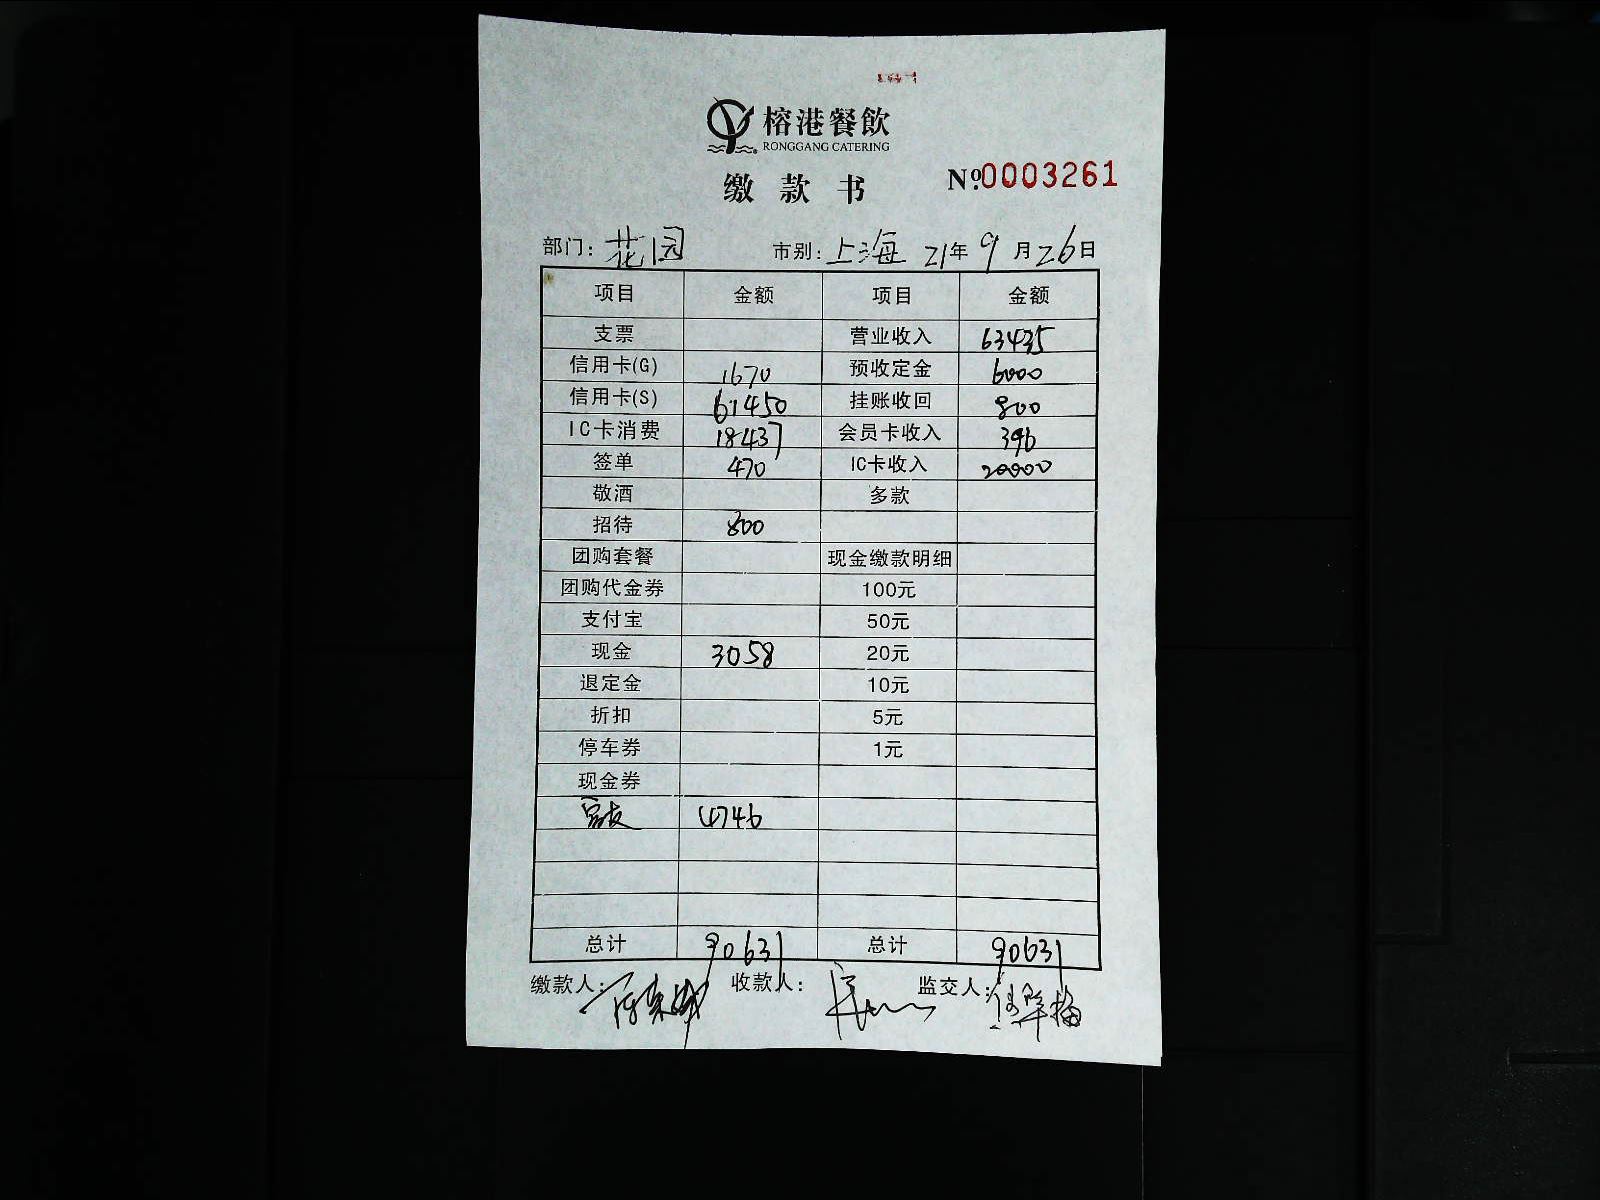 榕港餐飲
RONGGANG CATERING
缴款书
№0003261
部门: 花园 市别: 上海 21年 9月 26日
项目 金额 项目 金额
支票 营业收入 63435
信用卡(G) 1670 预收定金 6000
信用卡(S) 61450 挂账收回 800
IC卡消费 18437 会员卡收入 396
签单 470 IC卡收入 20000
敬酒 多款
招待 800
团购套餐 现金缴款明细
团购代金券 100元
支付宝 50元
现金 3058 20元
退定金 10元
折扣 5元
停车券 1元
现金券
4746
总计 90631 总计 90631
缴款人: 收款人: 监交人: